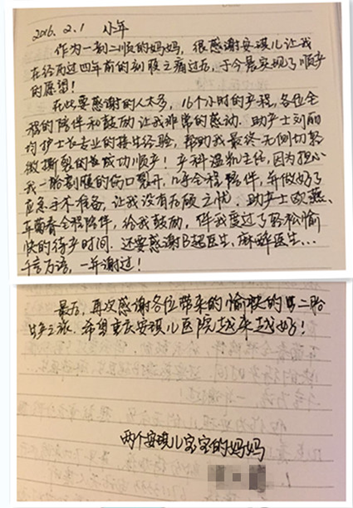 2016.2.1 小年
作为一剖二顺的妈妈，很感谢安琪儿让我
在经历过四年前的剖腹之痛过后，于今晨实现了顺产
的愿望！
在此要感谢的人太多，16个小时的产程，各位全
程的陪伴和鼓励让我非常的感动。助产士刘丽
均护士长专业的接生经验，帮助我最终无侧切轻
微撕裂的生成功顺产！产科温主任，因为担心
我一胎剖腹的伤口裂开，几乎全程陪伴，并做好了
应急手术准备，让我没有后顾之忧。助产士欧燕、
全程陪伴，给我鼓励，伴我度过了轻松愉
快的待产时间。还要感谢B超医生，麻醉医生…
千言万语，一并谢过！
最后，再次感谢各位带来的愉快的第二胎
生产之旅，希望重庆安琪儿医院越来越好！
两个安琪儿宝宝的妈妈